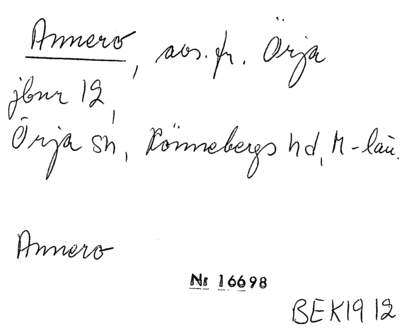 Annero, avs. fr. Örja
jbnr 12,
Örja sn, Rönnebergs hd, M-län.
Annero
Nr 16698
BEK1912